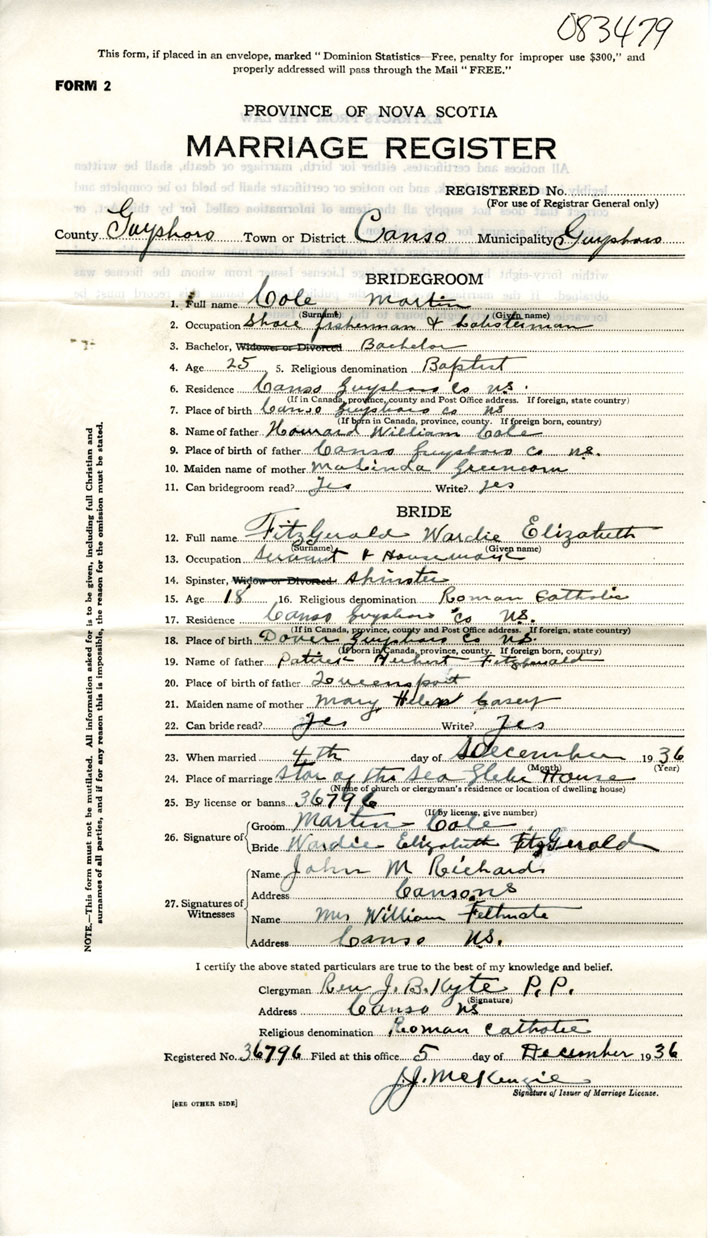 083479
This form, if placed in an envelope, marked "Dominion Statistics—Free, penalty for improper use $300," and
properly addressed will pass through the Mail "FREE."
FORM 2
PROVINCE OF NOVA SCOTIA
MARRIAGE REGISTER
REGISTERED No.
(For use of Registrar General only)
County Guysboro Town or District Canso Municipality Guysboro
BRIDEGROOM
1. Full name Cole Martin
(Surname) (Given name)
2. Occupation Shore fisherman & Lobsterman
3. Bachelor, Widower or Divorced Bachelor
4. Age 25 5. Religious denomination Baptist
6. Residence Canso Guysboro Co NS.
(If in Canada, province, county and Post Office address. If foreign, state country)
7. Place of birth Canso Guysboro Co NS
(If born in Canada, province, county. If foreign born, country)
8. Name of father Howard William Cole
9. Place of birth of father Canso Guysboro Co NS.
10. Maiden name of mother Malinda Greencorn
11. Can bridegroom read? Yes Write? yes
BRIDE
12. Full name FitzGerald Wardie Elizabeth
(Surname) (Given name)
13. Occupation Servant & Housework
14. Spinster, Widow or Divorced Spinster
15. Age 18 16. Religious denomination Roman Catholic
17. Residence Canso Guysboro Co NS.
(If in Canada, province, county and Post Office address. If foreign, state country)
18. Place of birth Dover Guysboro Co NS.
(If born in Canada, province, county. If foreign born, country)
19. Name of father Patrick Herbert Fitzgerald
20. Place of birth of father Queensport
21. Maiden name of mother Mary Helen Casey
22. Can bride read? Yes Write? Yes
23. When married 4th day of December 1936
(Month) (Year)
24. Place of marriage Star of the Sea Glebe House
(Name of church or clergyman's residence or location of dwelling house)
25. By license or banns 36796
(If by license, give number)
26. Signature of Groom Martin Cole
Bride Wardie Elizabeth FitzGerald
27. Signatures of Witnesses
Name John M Richards
Address Canso NS
Name Mrs William Feltmate
Address Canso NS.
I certify the above stated particulars are true to the best of my knowledge and belief.
Clergyman Rev J. B. Kyte P. P.
(Signature)
Address Canso NS
Religious denomination Roman Catholic
Registered No. 36796 Filed at this office 5 day of December 1936
J.J. McKenzie
Signature of Issuer of Marriage License.
[SEE OTHER SIDE]
NOTE.—This form must not be mutilated. All information asked for is to be given, including full Christian and
surnames of all parties, and if for any reason this is impossible, the reason for the omission must be stated.